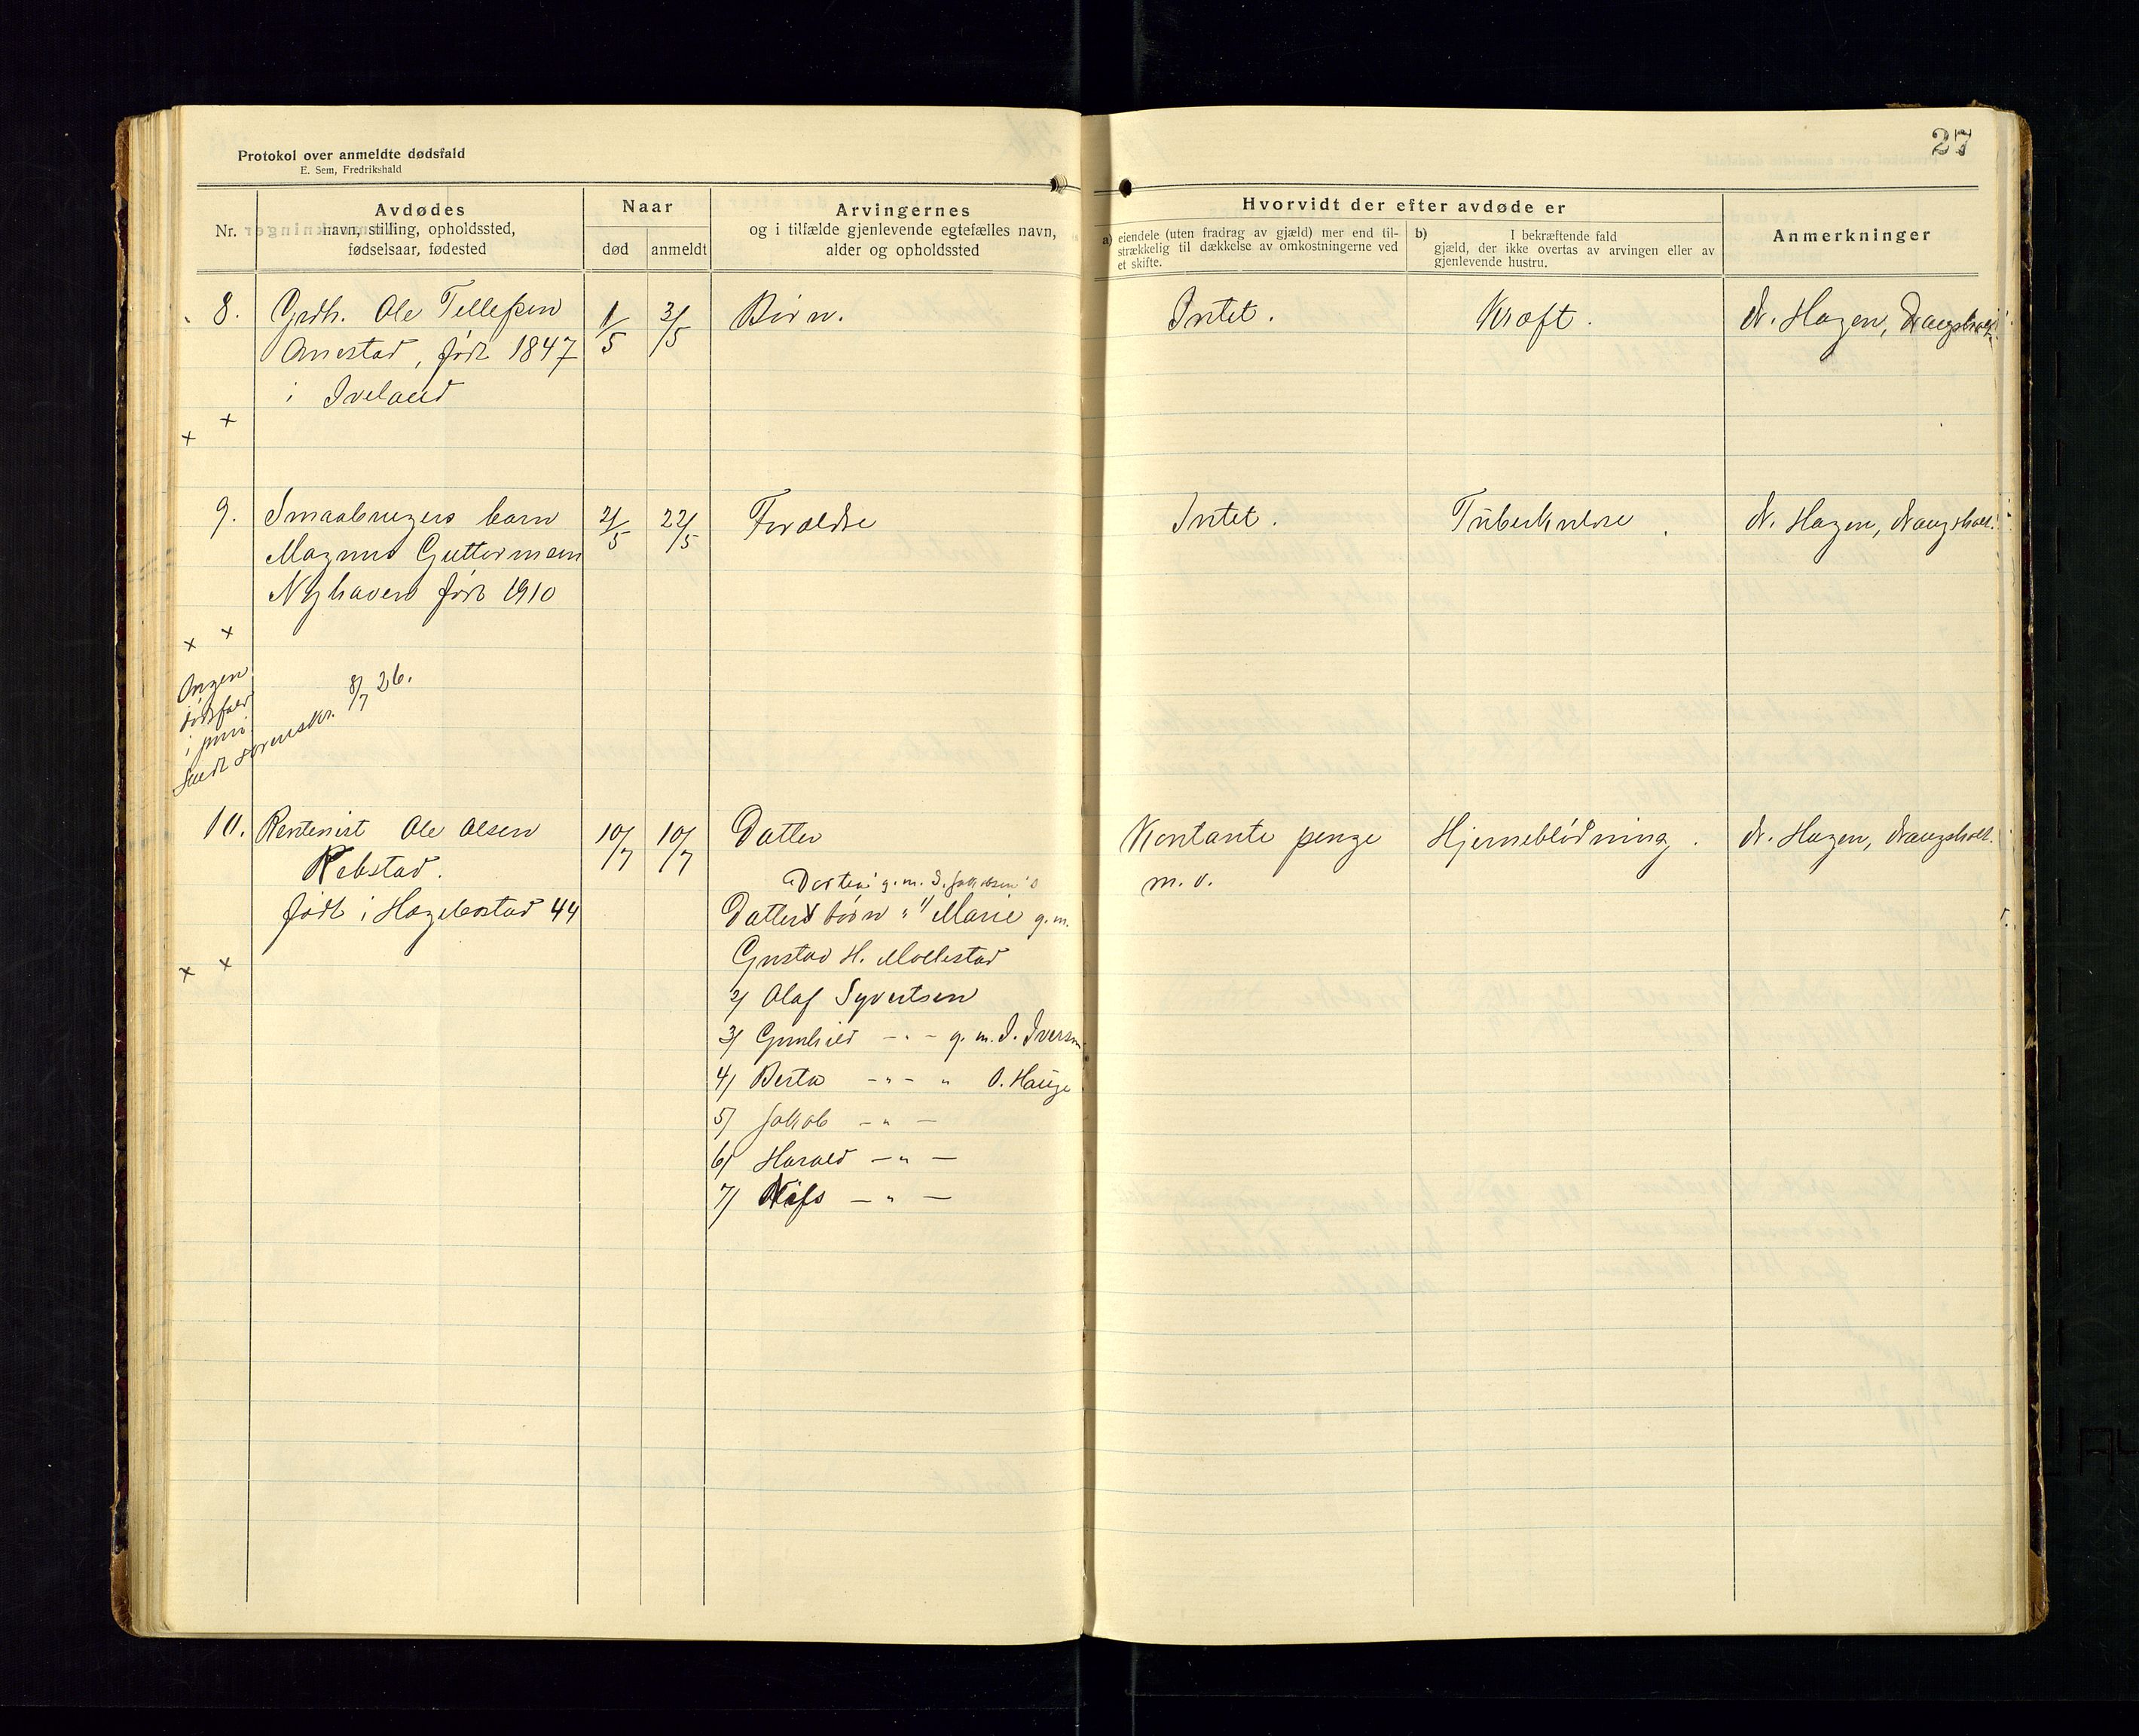 27
Protokol over anmeldte dødsfald
E. Sem, Fredrikshald
Nr.
Avdødes
navn, stilling, opholdssted,
fødselsaar, fødested
Naar
død
anmeldt
Arvingernes
og i tilfælde gjenlevende egtefælles navn,
alder og opholdssted
Hvorvidt der efter avdøde er
a) eiendele (uten fradrag av gjæld) mer end til-
strækkelig til dækkelse av omkostningerne ved
et skifte.
b) I bekræftende fald
gjæld, der ikke overtas av arvingen eller av
gjenlevende hustru.
Anmerkninger
8. Grdb. Ole Tellefsen 1/5 3/5 Børn. Intet. Kræft. N. Hagen, Naugsholt.
Omestad, født 1847
i Iveland
+ +
9. Smaabrugers barn 2/5 22/5 Forældre Intet. Tuberkulose. N. Hagen, Naugsholt.
Magnus Guttormsen
Nyhaven født 1910
+ +
Ingen
dødsfald
i juni
Sendt sorenskr. 8/7 26.
10. Rentenist Ole Olsen 10/7 10/7 Datter Kontante penge Hjerneblødning. N. Hagen, Naugsholt.
Rebstad. m. v.
Dortea g. m. S. Jakobsen's
født i Hægebostad 44 Datters børn: 1/ Marie g. m.
Gustav H. Mollestad
+ +
2/ Olaf Syvertsen
3/ Gunhild — " — g. m. I. Iversen
4/ Berta — " — " O. Hauge
5/ Jakob — " —
6/ Harald — " —
7/ — " —